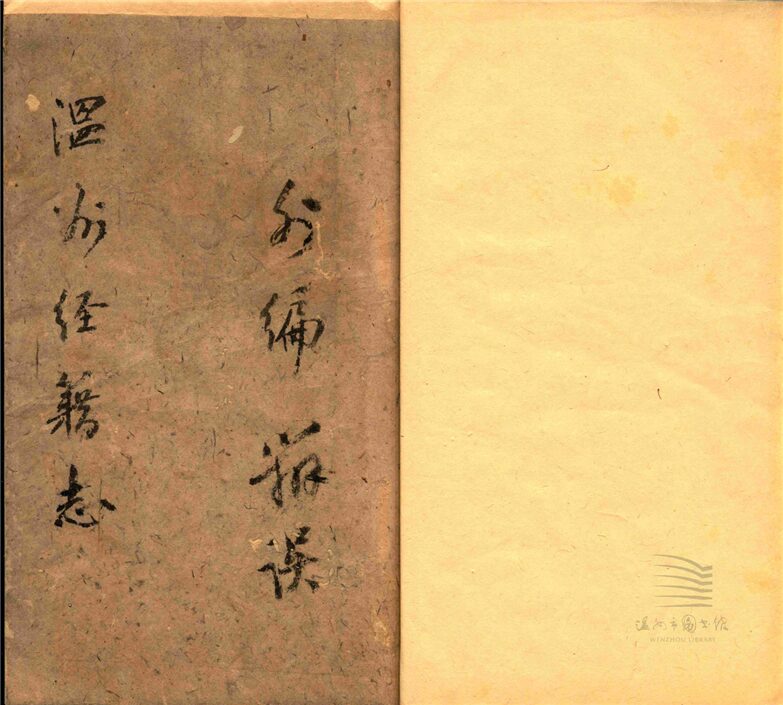 外编辨误
温州经籍志
温州市图书馆
WENZHOU LIBRARY